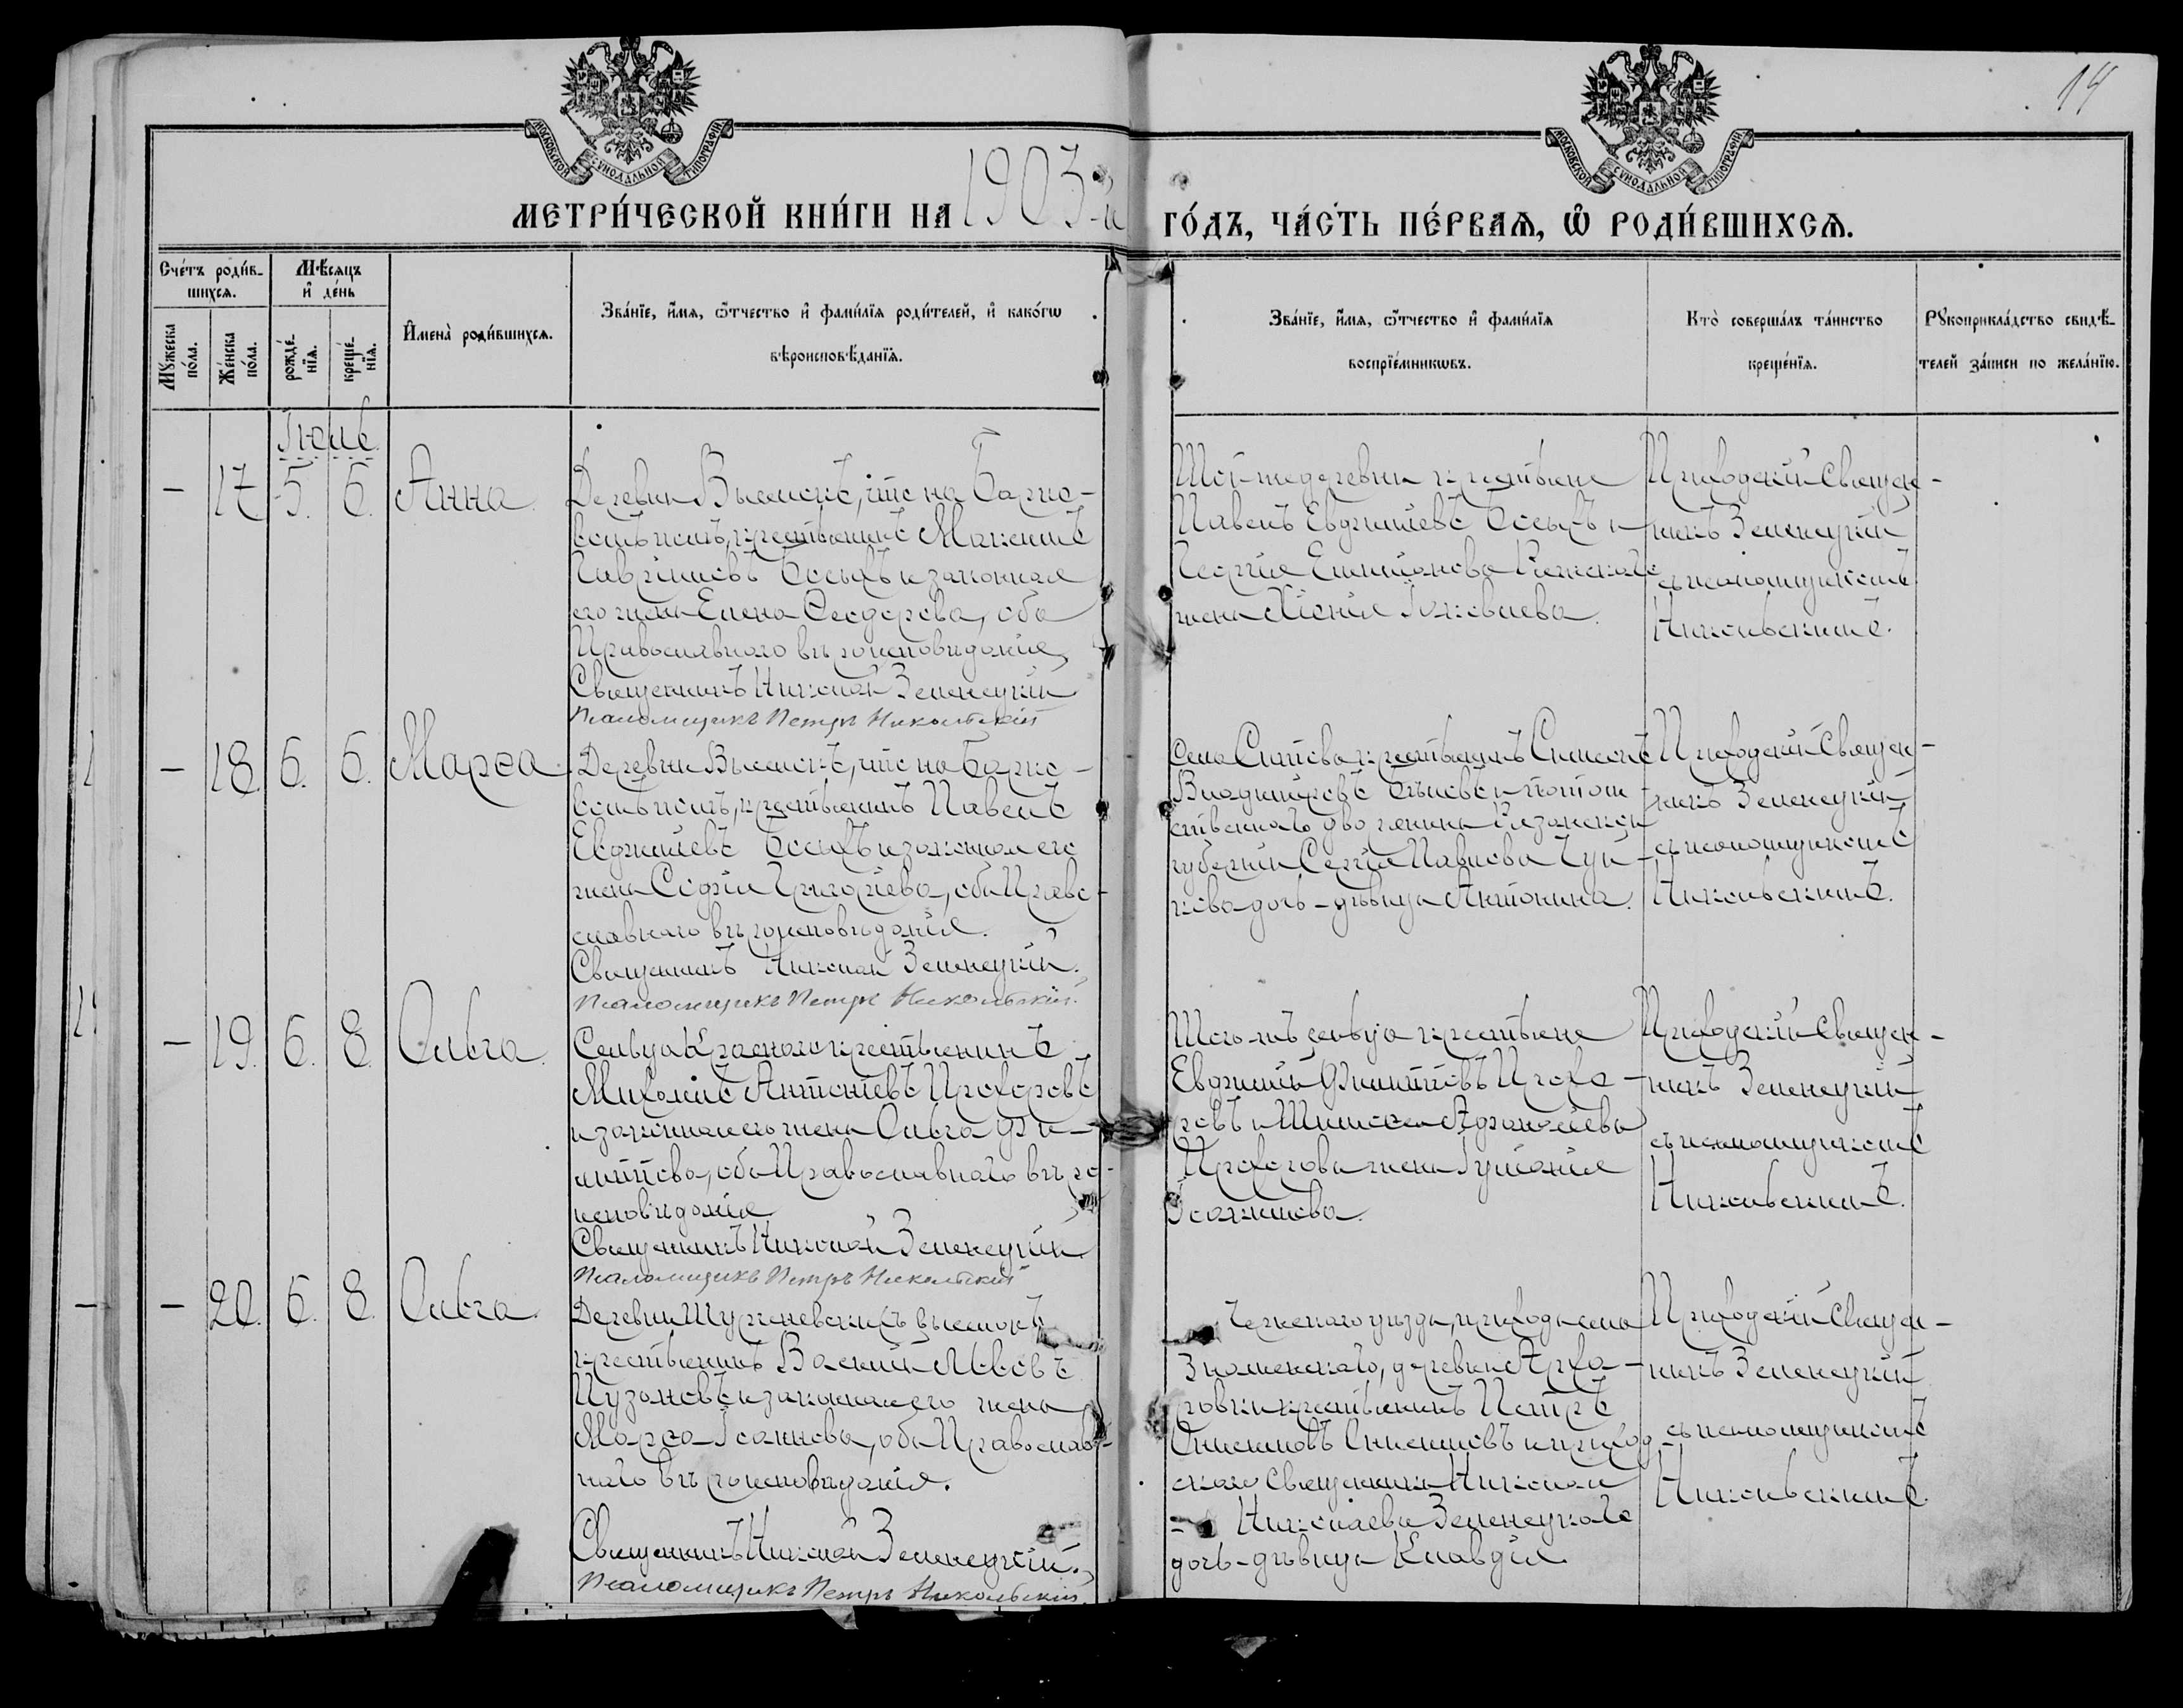 14
МОСКОВСКОЙ СѴНОДАЛЬНОЙ ТИПОГРАФІИ
МОСКОВСКОЙ СѴНОДАЛЬНОЙ ТИПОГРАФІИ
МЕТРИ́ЧЕСКОЙ КНИ́ГИ НА 1903-й ГО́ДЪ, ЧА́СТЬ ПЕ́РВАѦ, Ѿ РОДИ́ВШИХСѦ.
Сче́тъ роди́в-
шихся.
Мѣ́сяцъ
и҆ де́нь
Мꙋ́жеска по́ла.
Же́нска по́ла.
рожде́-
нїя.
креще́-
нїя.
И҆мена̀ роди́вшихся.
Зва́нїе, и҆́мя, ѻ҆́тчество и҆ фами́лїя роди́телей, и҆ како́гѡ
вѣроисповѣ́данїя.
Зва́нїе, и҆́мя, ѻ҆́тчество и҆ фами́лїя
воспрїе́мникѡвъ.
Кто̀ соверша́лъ та́инство
креще́нїя.
Рꙋкоприкла́дство свидѣ́-
телей за́писи по жела́нїю.
Іюнь
— 17 5. 6. Анна.
Деревни Выселокъ, что на Барко-
вскомъ полѣ, крестьянинъ Максимъ
Гавріиловъ Босыхъ и законная
его жена Елена Ѳеодорова, оба
Православнаго вѣроисповѣданія
Священникъ Николай Зеленецкій
Псаломщикъ Петръ Никольскій
Той-же деревни крестьяне
Павелъ Евфиміевъ Босыхъ и
Георгія Емиліанова жена Ксенія Іаковлева.
Приходскій священ-
никъ Зеленецкій
съ псаломщикомъ
Никольскимъ.
— 18. 6. 6. Марѳа.
Деревни Выселокъ, что на
крестьянинъ Павелъ
Евфиміевъ Босыхъ и законная его
жена Софія Григоріева, оба Право-
славнаго вѣроисповѣданія.
Священникъ Николай Зеленецкій.
Псаломщикъ Петръ Никольскій.
Села Ситова крестьянинъ Симеонъ
Владиміровъ и потом-
ственнаго дворянина Рязанской
губерніи Сергія Павлова
дочь-дѣвица Антонина.
Приходскій священ-
никъ Зеленецкій
съ псаломщикомъ
Никольскимъ.
— 19. 6. 8. Ольга.
Сельца Краснаго крестьянинъ
Михаилъ Антоніевъ Прохоровъ
и законная его жена Ольга Фи-
липпова, оба Православнаго вѣро-
исповѣданія
Священникъ Николай Зеленецкій
Псаломщикъ Петръ Никольскій
Того-жъ сельца крестьяне
Евфимій Филипповъ Прохо-
ровъ и Тимоѳея
Прохорова жена Іуліанія
Іоакимова.
Приходскій священ-
никъ Зеленецкій
съ псаломщикомъ
Никольскимъ.
— 20. 6. 8. Ольга.
Деревни выселокъ
крестьянинъ Василій Львовъ
Пузановъ и законная его жена
Марѳа Іоаннова, оба Православ-
наго вѣроисповѣданія.
Священникъ Николай Зеленецкій.
Псаломщикъ Петръ Никольскій.
уѣзда, прихода села
Знаменскаго, деревни
крестьянинъ Петръ
Онисимовъ Онисимовъ и приход-
скаго священника Николая
Николаева Зеленецкаго
дочь-дѣвица Клавдія.
Приходскій священ-
никъ Зеленецкій
съ псаломщикомъ
Никольскимъ.